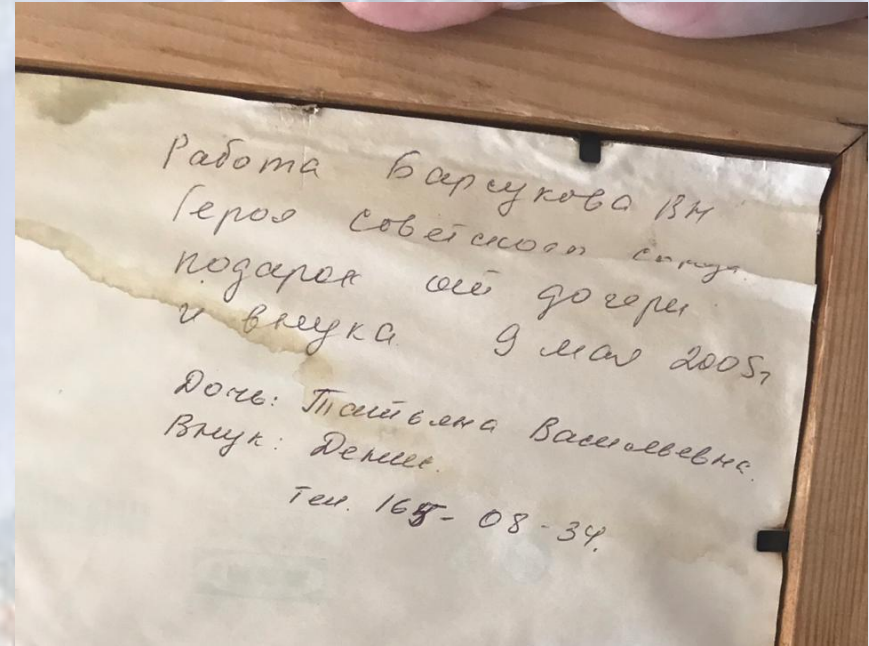 Работа Барсукова ВН
Героя Советского союза
подарок от дочери
и внука 9 мая 2005г
Дочь: Татьяна Васильевна.
Внук: Денис.
тел. 165-08-34.